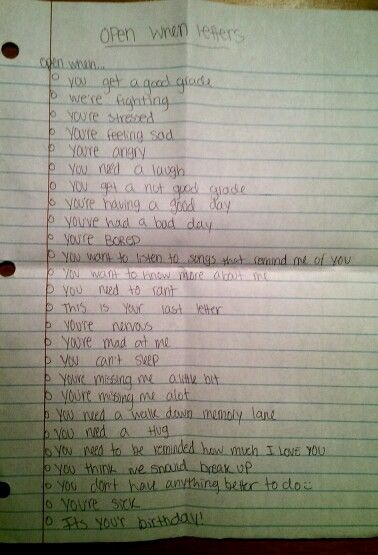 open when letters
open when...
o you get a good grade
o we're fighting
o you're stressed
o you're feeling sad
o you're angry
o you need a laugh
o you get a not good grade
o you're having a good day
o you've had a bad day
o you're BORED
o you want to listen to songs that remind me of you
o you want to know more about me
o you need to rant
o this is your last letter
o you're nervous
o you're mad at me
o you can't sleep
o you're missing me a little bit
o you're missing me alot
o you need a walk down memory lane
o you need a Hug
o you need to be reminded how much I love you
o you think we should break up
o you don't have anything better to do :)
o you're sick
o It's your birthday!